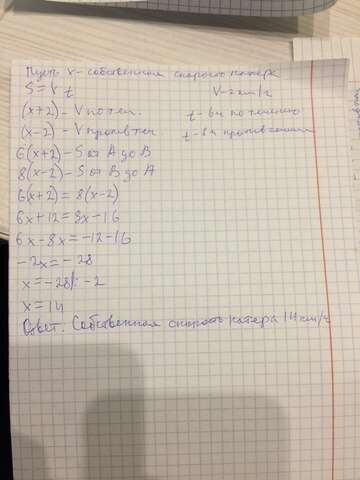 Пусть x-собственная скорость катера
S=V t V-2км/ч
(x+2)-V по теч. t-6ч по течению
(x-2)-V против теч t-8ч против течения
6(x+2)-S от A до B
8(x-2)-S от B до A
6(x+2)=8(x-2)
6x+12=8x-16
6x-8x=-12-16
-2x=-28
x=-28:-2
x=14
Ответ: Собственная скорость катера 14 км/ч